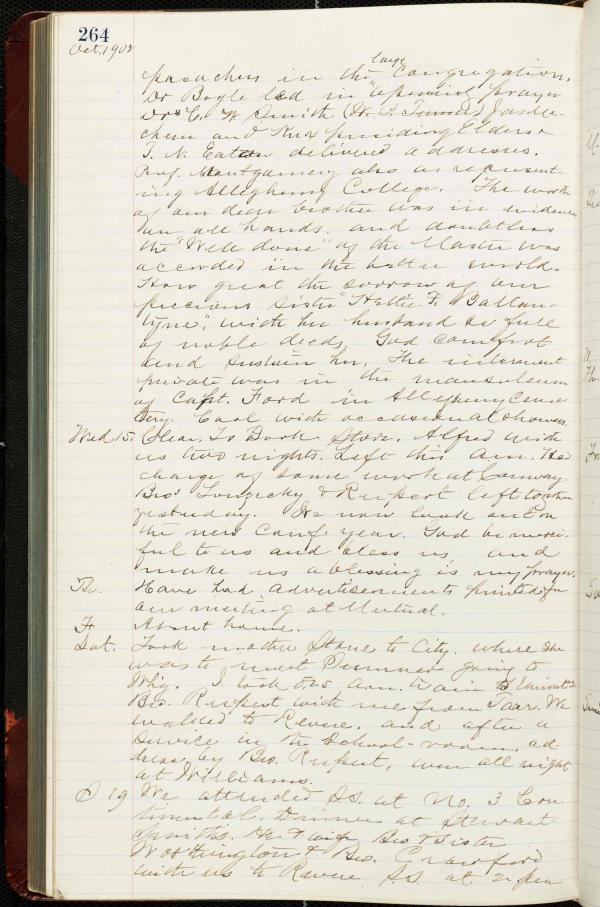 264
Oct, 1902
large
preachers in the congregation.
Dr Boyle led in opening prayer
Drs C. W. Smith (W. P. Turner) Jas
and Knox presiding Elders &
T. N. Eaton delivered addresses.
Prof. Montgomery also as represent-
ing Allegheny College. The worth
of our dear brother was in evidence
on all hands. and doubtless
the "Well done" of the Master was
accorded in the better world.
How great the sorrow of our
precious sister "Hattie F. Ballan-
tyne", with her husband so full
of noble deeds. God comfort
and sustain her. The interment
private was in the mausoleum
of Capt. Ford in Allegheny Ceme
tery. Cool with occasional showers.
Wed 15. Clear. To Book Store. Alfred with
us two nights. Left this am. Has
charge of some work at Conway
Bros Longecky & Rupert left
yesterday. We now look out on
the new Conf. year. God be merci-
ful to us and bless us and
make us a blessing is my prayer.
Th. Have had advertisements printed for
our meeting at Mutual.
F About home.
Sat. Took mother Stone to City. where she
was to meet Sumner going to
Whg. I took 5.25 a.m. train to
Bro. Rupert with me from Tarr. We
walked to Revere. and after a
service in the School-room, ad-
dress by Bro. Rupert, were all night
at Williams.
S 19 We attended S.S. at No. 3 Con
tinental. Dinner at Stewart
Smiths. He & wife, Bro & Sister
Worthington & Bro. Crawford
with us to Revere S.S. at 2 pm